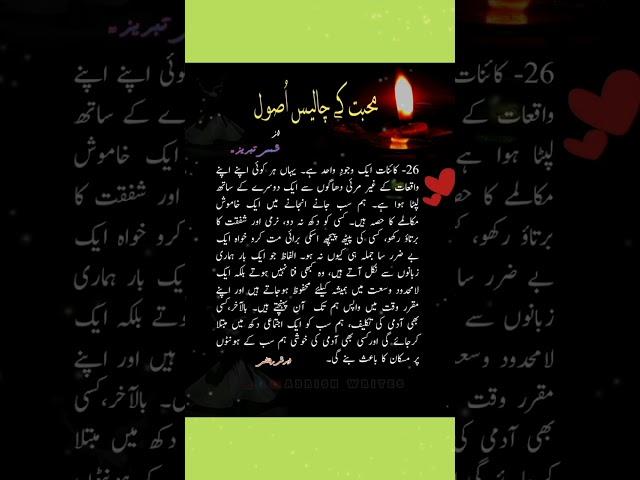 محبت کے چالیس اُصول
از
شمس تبریز۔
26- کائنات ایک وجودِ واحد ہے۔ یہاں ہر کوئی اپنے اپنے
واقعات کے غیر مرئی دھاگوں سے ایک دوسرے کے ساتھ
لپٹا ہوا ہے۔ ہم سب جانے انجانے میں ایک خاموش
مکالمے کا حصہ ہیں۔ کسی کو دکھ نہ دو، نرمی اور شفقت کا
برتاؤ رکھو، کسی کی پیٹھ پیچھے اسکی برائی مت کرو خواہ ایک
بے ضرر سا جملہ ہی کیوں نہ ہو۔ الفاظ جو ایک بار ہماری
زبانوں سے نکل آتے ہیں، وہ کبھی فنا نہیں ہوتے بلکہ ایک
لامحدود وسعت میں ہمیشہ کیلئے محفوظ ہوجاتے ہیں اور اپنے
مقرر وقت میں واپس ہم تک آن پہنچتے ہیں۔ بالآخر،کسی
بھی آدمی کی تکلیف، ہم سب کو ایک اجتماعی دکھ میں مبتلا
کرجائے گی اورکسی بھی آدمی کی خوشی ہم سب کے ہونٹوں
پر مسکان کا باعث بنے گی۔
WRITES